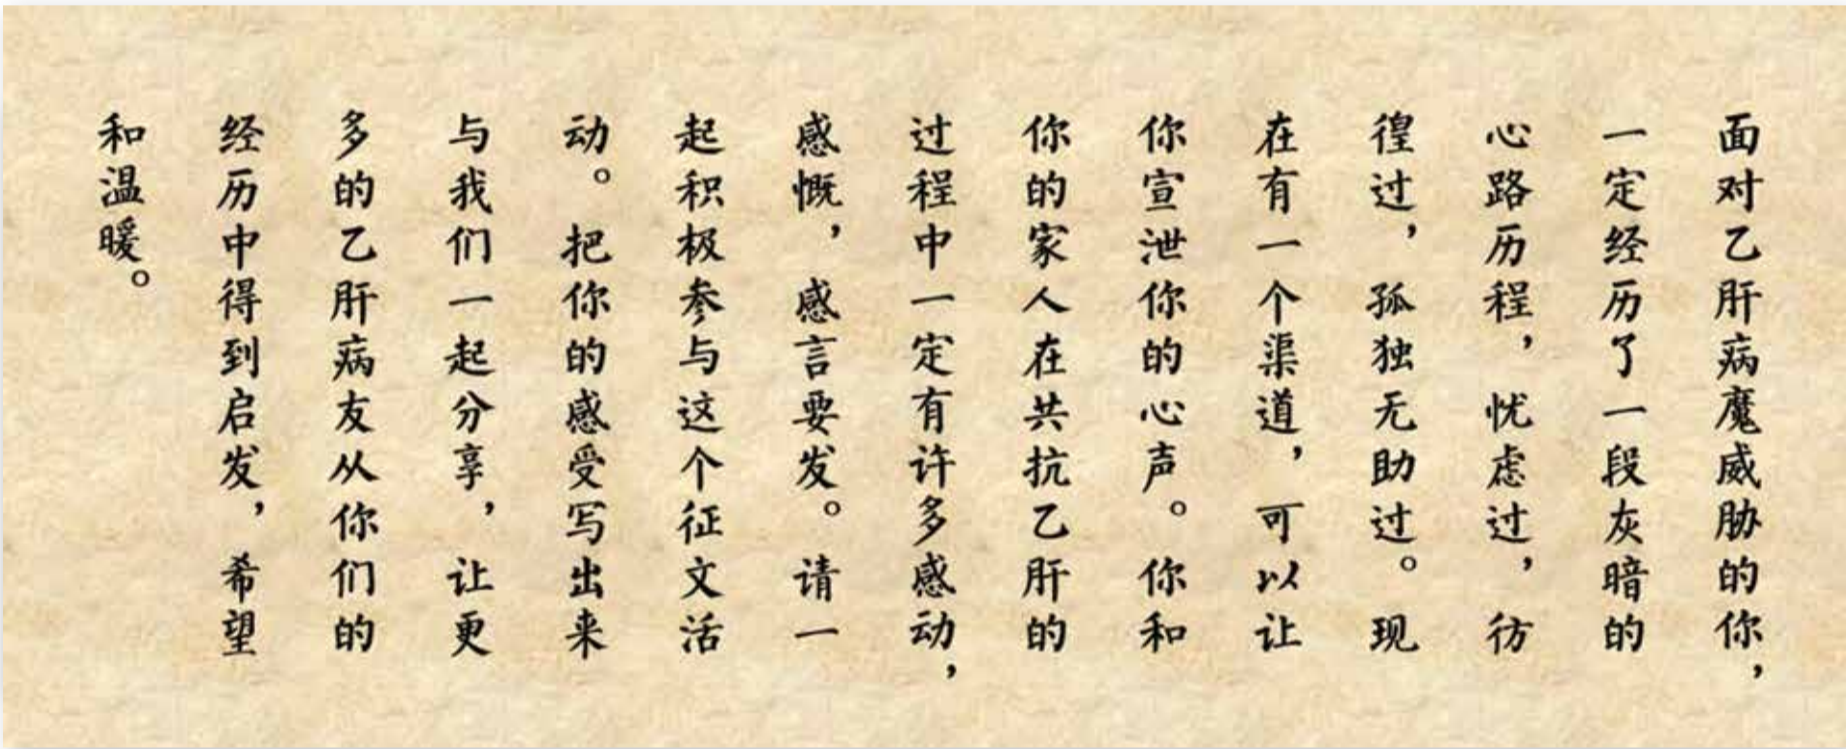 面对乙肝病魔威胁的你，
一定经历了一段灰暗的
心路历程，忧虑过，彷
徨过，孤独无助过。现
在有一个渠道，可以让
你宣泄你的心声。你和
你的家人在共抗乙肝的
过程中一定有许多感动，
感慨，感言要发。请一
起积极参与这个征文活
动。把你的感受写出来
与我们一起分享，让更
多的乙肝病友从你们的
经历中得到启发，希望
和温暖。